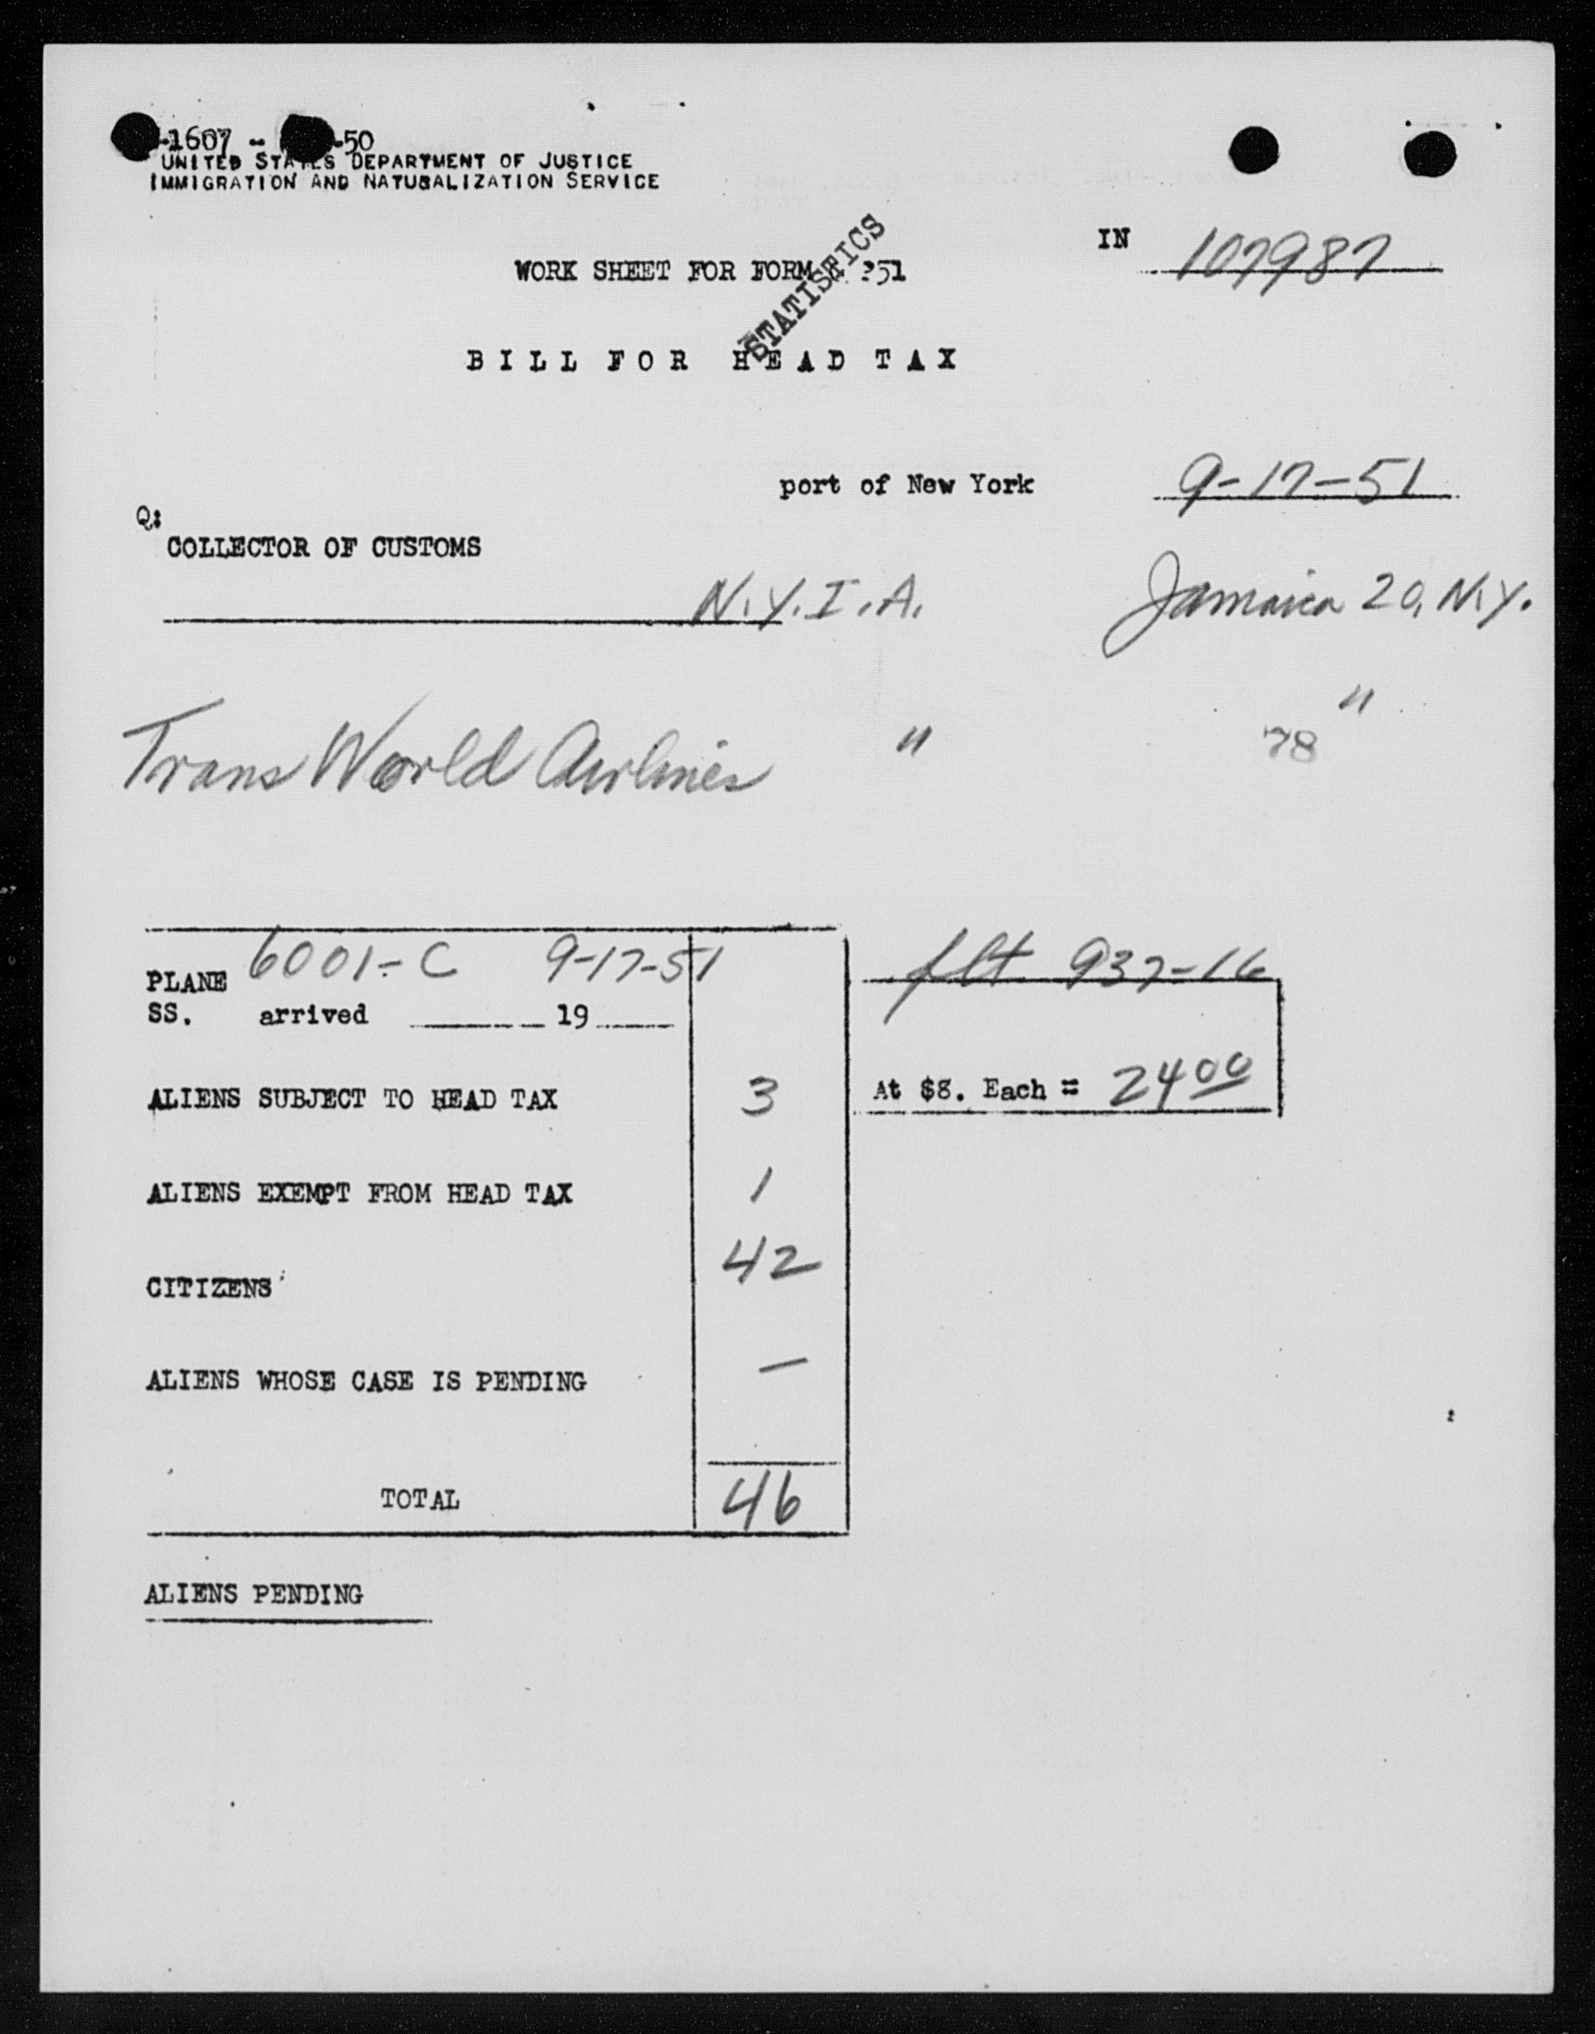 -1607 - -50
UNITED STATES DEPARTMENT OF JUSTICE
IMMIGRATION AND NATURALIZATION SERVICE
IN 107987
WORK SHEET FOR FORM 351
STATISTICS
BILL FOR HEAD TAX
port of New York 9-17-51
Q:
COLLECTOR OF CUSTOMS
N.Y.I.A. Jamaica 20, N.Y.
Trans World Airlines " "
78
PLANE 6001-C 9-17-51 flt 937-16
SS. arrived 19
ALIENS SUBJECT TO HEAD TAX 3 At $8. Each = 24 00
ALIENS EXEMPT FROM HEAD TAX 1
CITIZENS 42
ALIENS WHOSE CASE IS PENDING —
TOTAL 46
ALIENS PENDING